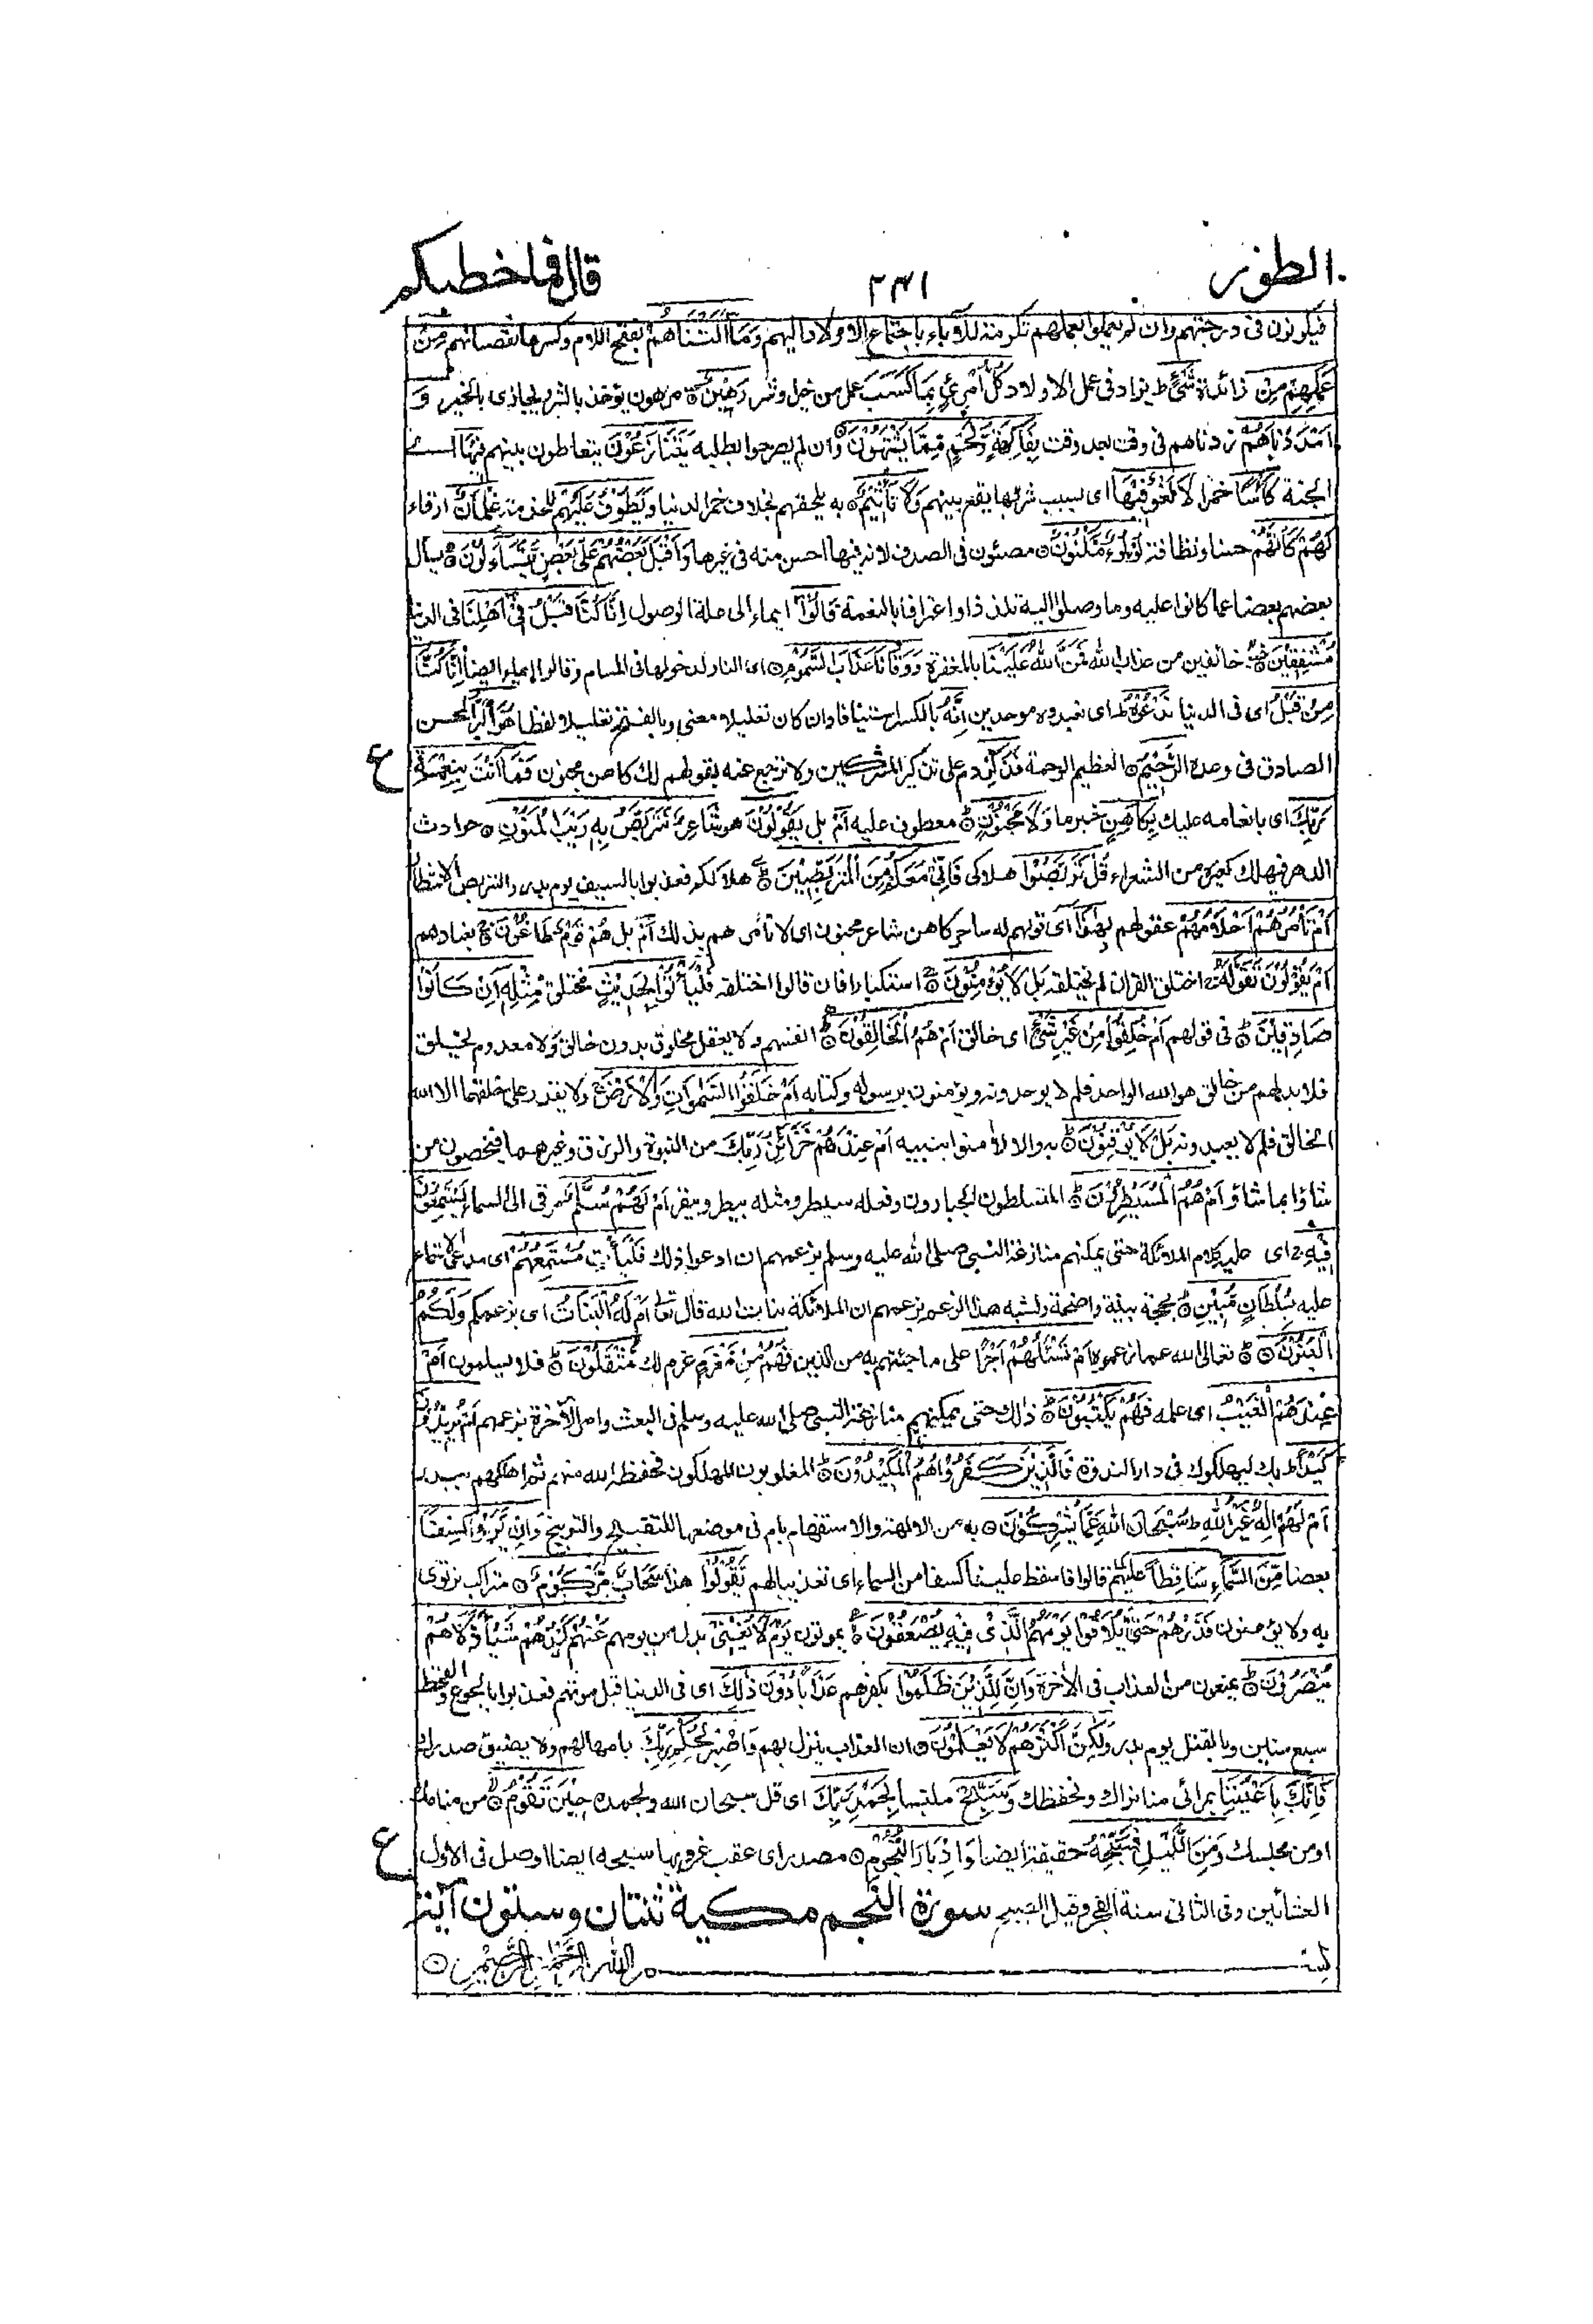 الطور ٢٣١ قال فما خطبكم
فيكونون في درجتهم وان لم يعملوا بعملهم تكرمة للآباء باجتماع الاولاد اليهم وَمَا اَلَتْنَاهُمْ بفتح اللام وكسرها نقصناهم مِنْ
عَمَلِهِمْ مِنْ زائدة شَيْءٍ ط يزاد في عمل الاولاد كُلُّ امْرِئٍ بِمَا كَسَبَ عمل من خير وشر رَهِيْنٌ ۝ مرهون يؤخذ بالشر ويجازى بالخير وَ
اَمْدَدْنَاهُمْ زدناهم في وقت بعد وقت بِفَاكِهَةٍ وَّلَحْمٍ مِّمَّا يَشْتَهُوْنَ ۝ وان لم يصرحوا بطلبه يَتَنَازَعُوْنَ يتعاطون بينهم فِيْهَا اے
الجنة كَأْسًا خمرا لَا لَغْوٌ فِيْهَا اى بسبب شربها يقع بينهم وَلَا تَأْثِيْمٌ ۝ به يلحقهم بخلاف خمر الدنيا وَيَطُوْفُ عَلَيْهِمْ للخدمة غِلْمَانٌ ارقاء
لَهُمْ كَاَنَّهُمْ حسنا ونظافة لُؤْلُؤٌ مَّكْنُوْنٌ ۝ مصئون في الصدف لانه فيها احسن منه في غيرها وَاَقْبَلَ بَعْضُهُمْ عَلٰى بَعْضٍ يَّتَسَاءَلُوْنَ ۝ يسأل
بعضهم بعضا عما كانوا عليه وما وصلوا اليه تلذذا واعترافا بالنعمة قَالُوْا ايماء الى علة الوصول اِنَّا كُنَّا قَبْلُ فِيْ اَهْلِنَا في الدنيا
مُشْفِقِيْنَ ۝ خائفين من عذاب الله فَمَنَّ اللهُ عَلَيْنَا بالمغفرة وَوَقَانَا عَذَابَ السَّمُوْمِ ۝ اى النار لدخولها في المسام وقالوا ايماء ايضا اِنَّا كُنَّا
مِنْ قَبْلُ اى في الدنيا نَدْعُوْهُ ط اى نعبده موحدين اِنَّهُ بالكسر استينافا وان كان تعليلا معنى وبالفتح تعليلا لفظا هُوَ الْبَرُّ المحسن
الصادق في وعده الرَّحِيْمُ ۝ العظيم الرحمة فَذَكِّرْ دم على تذكير المشركين ولا ترجع عنه بقولهم لك كاهن مجنون فَمَا اَنْتَ بِنِعْمَتِ ع
رَبِّكَ اى بانعامه عليك بِكَاهِنٍ خبر ما وَّلَا مَجْنُوْنٍ ۝ معطوف عليه اَمْ بل يَقُوْلُوْنَ هو شَاعِرٌ نَّتَرَبَّصُ بِهِ رَيْبَ الْمَنُوْنِ ۝ حوادث
الدهر فيهلك كغيره من الشعراء قُلْ تَرَبَّصُوْا هلاكى فَاِنِّيْ مَعَكُمْ مِنَ الْمُتَرَبِّصِيْنَ ۝ هلاككم فعذبوا بالسيف يوم بدر والتربص الانتظار
اَمْ تَأْمُرُهُمْ اَحْلَامُهُمْ عقولهم بِهٰذَا اى قولهم له ساحر كاهن شاعر مجنون اى لا تأمرهم بذلك اَمْ بل هُمْ قَوْمٌ طَاغُوْنَ ۝ بعنادهم
اَمْ يَقُوْلُوْنَ تَقَوَّلَهُ اختلق القران لم يختلقه بَل لَّا يُؤْمِنُوْنَ ۝ استكبارا فان قالوا اختلقه فَلْيَأْتُوْا بِحَدِيْثٍ مختلق مِّثْلِهِ اِنْ كَانُوْا
صَادِقِيْنَ ۝ في قولهم اَمْ خُلِقُوْا مِنْ غَيْرِ شَيْءٍ اى خالق اَمْ هُمُ الْخَالِقُوْنَ ۝ انفسهم ولا يعقل مخلوق بدون خالق ولا معدوم يخلق
فلابد لهم من خالق هو الله الواحد فلم لا يوحدونه ويؤمنون برسوله وكتابه اَمْ خَلَقُوا السَّمٰوَاتِ وَالْاَرْضَ ج ولا يقدر على خلقهما الا الله
الخالق فلم لا يعبدونه بَلْ لَّا يُوْقِنُوْنَ ۝ به والا لامنوا بنبيه اَمْ عِنْدَهُمْ خَزَائِنُ رَبِّكَ من النبوة والرزق وغيرهما فيخصون من
شاؤا بما شاؤا اَمْ هُمُ الْمُسَيْطِرُوْنَ ۝ المتسلطون الجبارون وفعله سيطر ومثله بيطر وبيقر اَمْ لَهُمْ سُلَّمٌ مرقى الى السماء يَّسْتَمِعُوْنَ
فِيْهِ ج اى عليه كلام الملائكة حتى يمكنهم منازعة النبي صلى الله عليه وسلم بزعمهم ان ادعوا ذلك فَلْيَأْتِ مُسْتَمِعُهُمْ اى مدعى الاستماع
عليه بِسُلْطَانٍ مُّبِيْنٍ ۝ بحجة بينة واضحة ولشبه هذا الزعم بزعمهم ان الملائكة بنات الله قال تعا اَمْ لَهُ الْبَنَاتُ اى بزعمكم وَلَكُمُ
الْبَنُوْنَ ۝ تعالى الله عما زعموه اَمْ تَسْئَلُهُمْ اَجْرًا على ما جئتهم به من الدين فَهُمْ مِّنْ مَّغْرَمٍ غرم لك مُّثْقَلُوْنَ ۝ فلا يسلمون اَمْ
عِنْدَهُمُ الْغَيْبُ اى علمه فَهُمْ يَكْتُبُوْنَ ۝ ذلك حتى يمكنهم منازعة النبي صلى الله عليه وسلم في البعث وامر الآخرة بزعمهم اَمْ يُرِيْدُوْنَ
كَيْدًا ط بك ليهلكوك في دار الندوة فَالَّذِيْنَ كَفَرُوْا هُمُ الْمَكِيْدُوْنَ ۝ المغلوبون المهلكون فحفظه الله منهم ثم اهلكهم ببدر
اَمْ لَهُمْ اِلٰهٌ غَيْرُ اللهِ ط سُبْحَانَ اللهِ عَمَّا يُشْرِكُوْنَ ۝ به من الالهة والاستفهام بام في موضعها للتقبيح والتوبيخ وَاِنْ يَّرَوْا كِسْفًا
بعضا مِّنَ السَّمَاءِ سَاقِطًا عليهم كما قالوا فاسقط علينا كسفا من السماء اى تعذيبا لهم يَقُوْلُوْا هذا سَحَابٌ مَّرْكُوْمٌ ۝ متراكب نرتوى
به ولا يؤمنون فَذَرْهُمْ حَتّٰى يُلٰقُوْا يَوْمَهُمُ الَّذِيْ فِيْهِ يُصْعَقُوْنَ ۝ يموتون يَوْمَ لَا يُغْنِيْ بدل من يومهم عَنْهُمْ كَيْدُهُمْ شَيْئًا وَّلَا هُمْ
يُنْصَرُوْنَ ۝ يمنعون من العذاب في الآخرة وَاِنَّ لِلَّذِيْنَ ظَلَمُوْا بكفرهم عَذَابًا دُوْنَ ذٰلِكَ اى في الدنيا قبل موتهم فعذبوا بالجوع والقحط
سبع سنين وبالقتل يوم بدر وَلٰكِنَّ اَكْثَرَهُمْ لَا يَعْلَمُوْنَ ۝ ان العذاب ينزل بهم وَاصْبِرْ لِحُكْمِ رَبِّكَ بامهالهم ولا يضيق صدرك
فَاِنَّكَ بِاَعْيُنِنَا بمرائى منا نراك ونحفظك وَسَبِّحْ ملتبسا بِحَمْدِ رَبِّكَ اى قل سبحان الله وبحمده حِيْنَ تَقُوْمُ ۝ من منامك
او من مجلسك وَمِنَ الَّيْلِ فَسَبِّحْهُ حقيقة ايضا وَاِدْبَارَ النُّجُوْمِ ۝ مصدر اى عقب غروبها سبحه ايضا او صل في الاول ع
العشائين وفي الثانى سنة الفجر وقيل الصبح سورة النجم مكية ثنتان وستون آية
بسم الله الرحمن الرحيم ۝